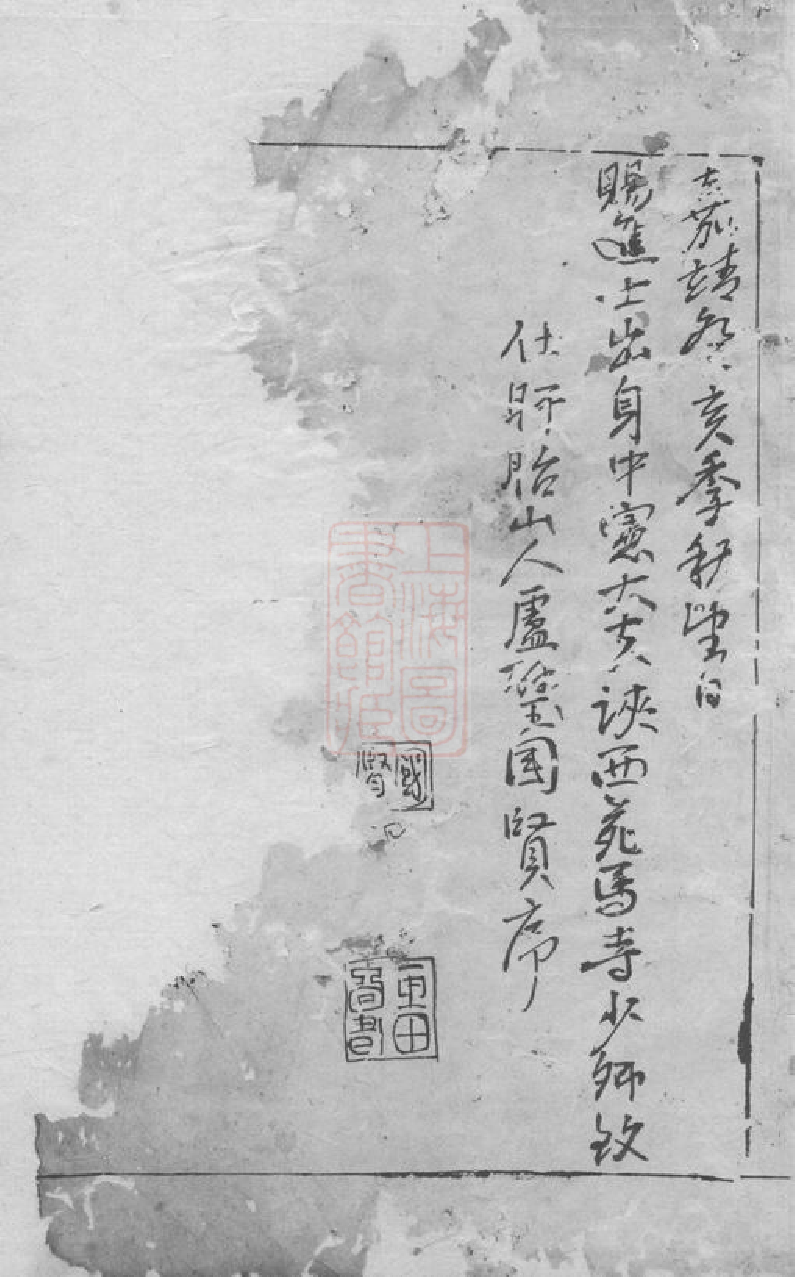 嘉靖癸亥季秋望日
賜進士出身中憲大夫陝西苑馬寺少卿致
仕盱眙山人盧璧国賢序
國賢
上海圖書館藏